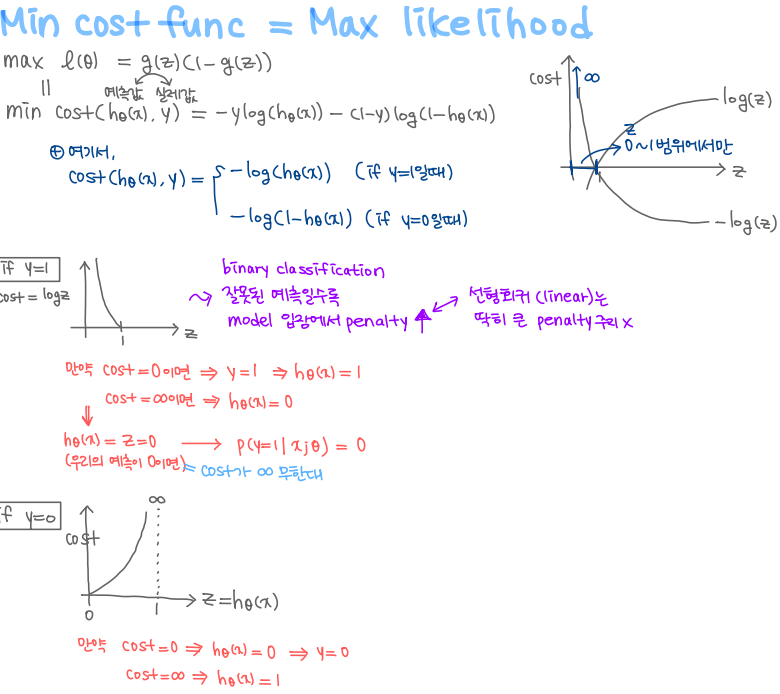 Min cost func = Max likelihood
max l(θ) = g(z)(1-g(z))
||
예측값 실제값
min cost(hθ(x), y) = -ylog(hθ(x)) - (1-y)log(1-hθ(x))
⊕ 여기서,
cost(hθ(x), y) = { -log(hθ(x)) (if y=1일때)
-log(1-hθ(x)) (if y=0일때)
cost
∞
log(z)
z
0~1범위에서만
z
-log(z)
if y=1
cost = logz
1
z
binary classification
잘못된 예측일수록
model 입장에서 penalty ↑
선형회귀 (linear)는
딱히 큰 penalty 구리 x
만약 cost=0이면 ⇒ y=1 ⇒ hθ(x)=1
cost=∞이면 ⇒ hθ(x)=0
⇓
hθ(x)=z=0 → p(y=1|x;θ)=0
(우리의 예측이 0이면) = cost가 ∞ 무한대
if y=0
cost
∞
0
1
z=hθ(x)
만약 cost=0 ⇒ hθ(x)=0 ⇒ y=0
cost=∞ ⇒ hθ(x)=1